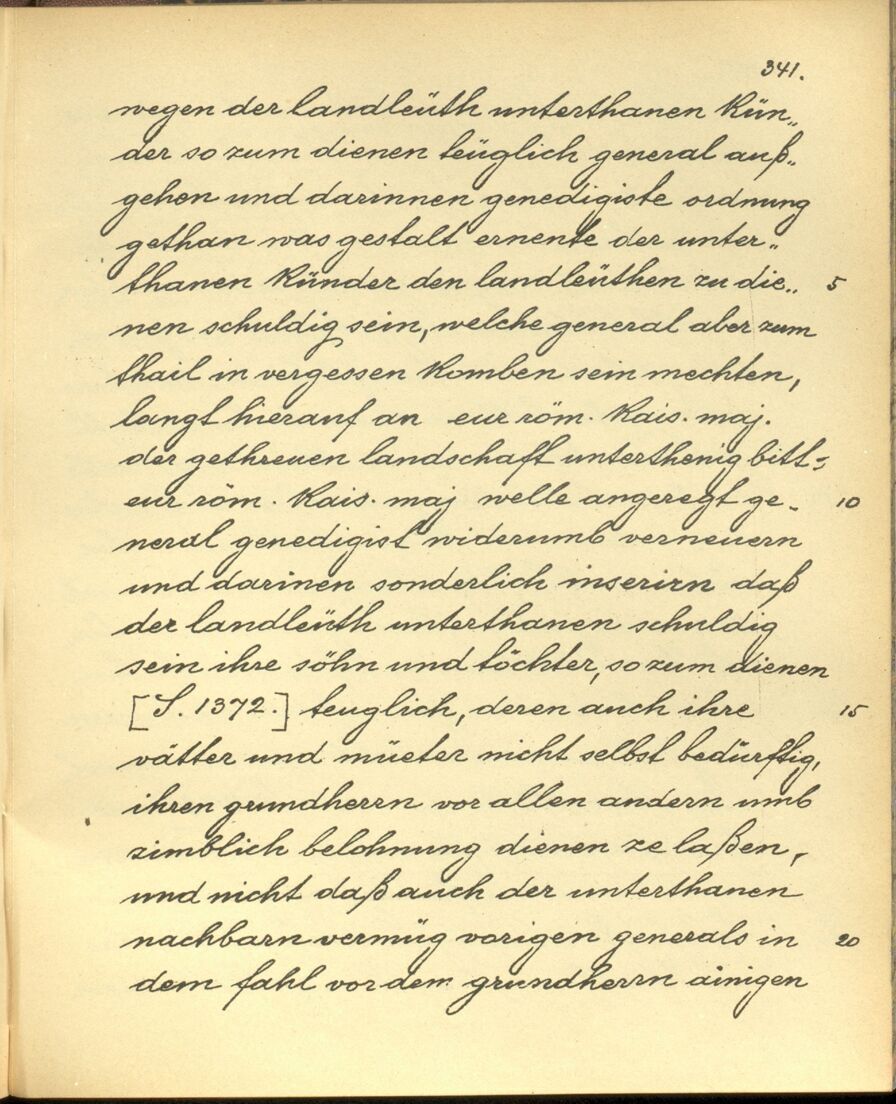 341.
wegen der landleüth unterthanen Kün„
der so zum dienen teüglich general auß„
gehen und darinnen genedigiste ordnung
gethan was gestalt ernente der unter„
thanen Künder den landleüthen zu die„ 5
nen schuldig sein, welche general aber zum
thail in vergessen Komben sein mechten,
langt hierauf an eur röm. Kais. maj.
der gethreuen landschaft unterthenig bitt:
eur röm. Kais. maj welle angeregt ge- 10
neral genedigist widerumb verneuern
und darinen sonderlich inserirn daß
der landleüth unterthanen schuldig
sein ihre söhn und töchter, so zum dienen
[S. 1372.] teuglich, deren auch ihre 15
vätter und müeter nicht selbst bedürftig,
ihren grundherrn vor allen andern umb
zimblich belohnung dienen ze laßen,
und nicht daß auch der unterthanen
nachbarn vermüg vorigen generals in 20
dem fahl vor dem grundherrn ainigen